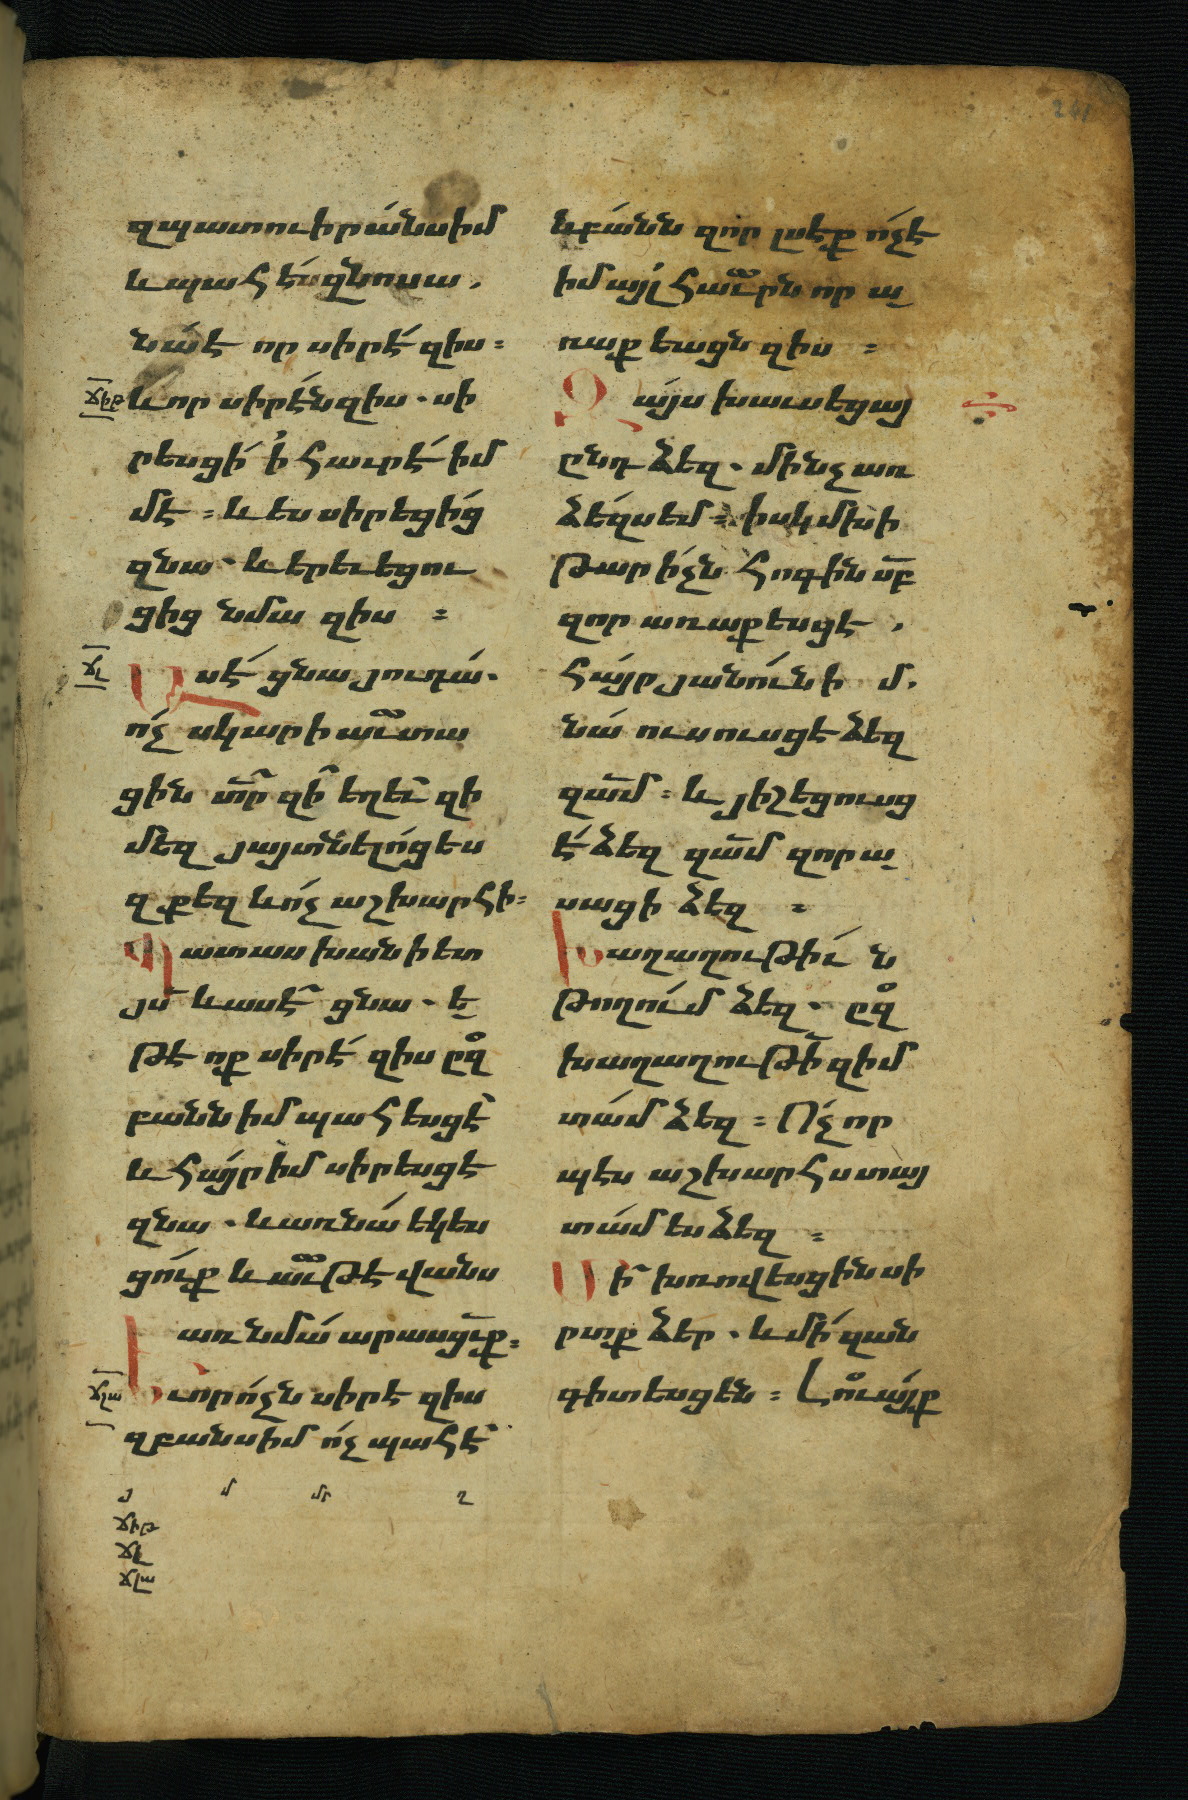 զպատուիրանսիմ
և պահէ զնոսա ,
նա՛է որ սիրէ զիս :
և որ սիրէն զիս . սի
րեսցի ի հաւրէ իմ
մէ : և ես սիրեցից
զնա . և երեւեցու
ցից նմա զիս :
Ասէ ցնա յուդա .
ո՛չ սկարիաւտա
ցին տր զի եղեւ զի
մեզ յայտնելոց ես
զքեզ և ո՛չ աշխարհի :
Պատասխանի ետ
յս և ասէ ցնա . ե
թէ ոք սիրէ զիս ըզ
բանն իմ պահեսցէ
և հայր իմ սիրեսցէ
զնա . և առ նա եկես
ցուք և աւթէվանս
առ նմա արասցուք :
Եւ որ ո՛չն սիրէ զիս
զբանս իմ ո՛չ պահէ
ճիթ
ճլ
ճլա
և բանն զոր լսէք ո՛չ է
իմ այլ հաւրն որ ա
ռաքեացն զիս :
Զայս խաւսեցայ
ընդ ձեզ . մինչ առ
ձեզս եմ : իսկ մխի
թարիչն հոգին սբ
զոր առաքեսցէ ,
հայր յանուն իմ .
նա ուսուսցէ ձեզ
զամ : և յիշեցուսց
է ձեզ զամ զոր ա
սացի ձեզ :
Խաղաղութիւն
թողում ձեզ . ըզ
խաղաղութի զիմ
տամ ձեզ : Ո՛չ որ
պէս աշխարհս տայ
տամ ես ձեզ :
Մի խռովեսցին սի
րտք ձեր . և մի զան
գիտեսցեն : Լուայք
ճիթ
ճլ
ճլա